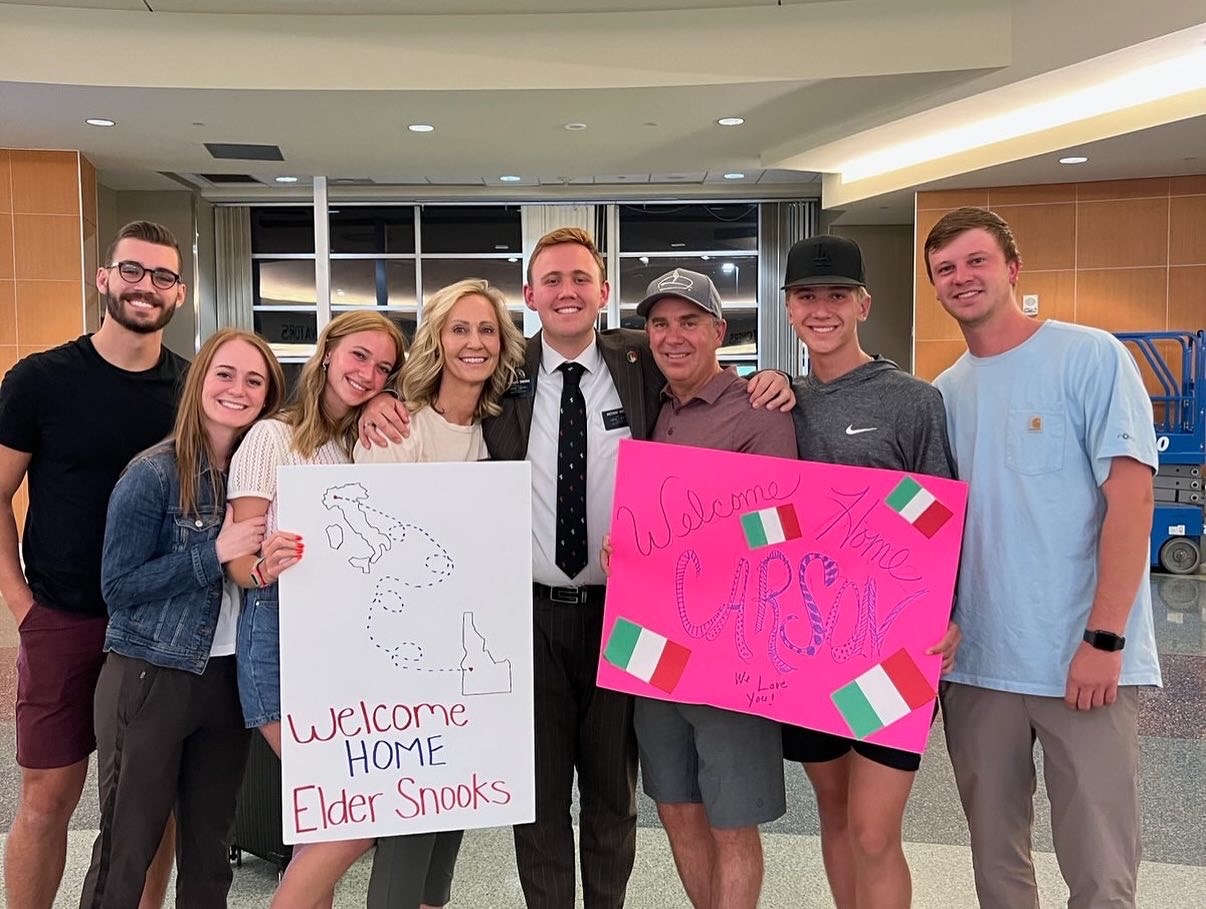 Welcome
HOME
Elder Snooks
Welcome Home
CARSON
We Love
You!
carhartt
LA